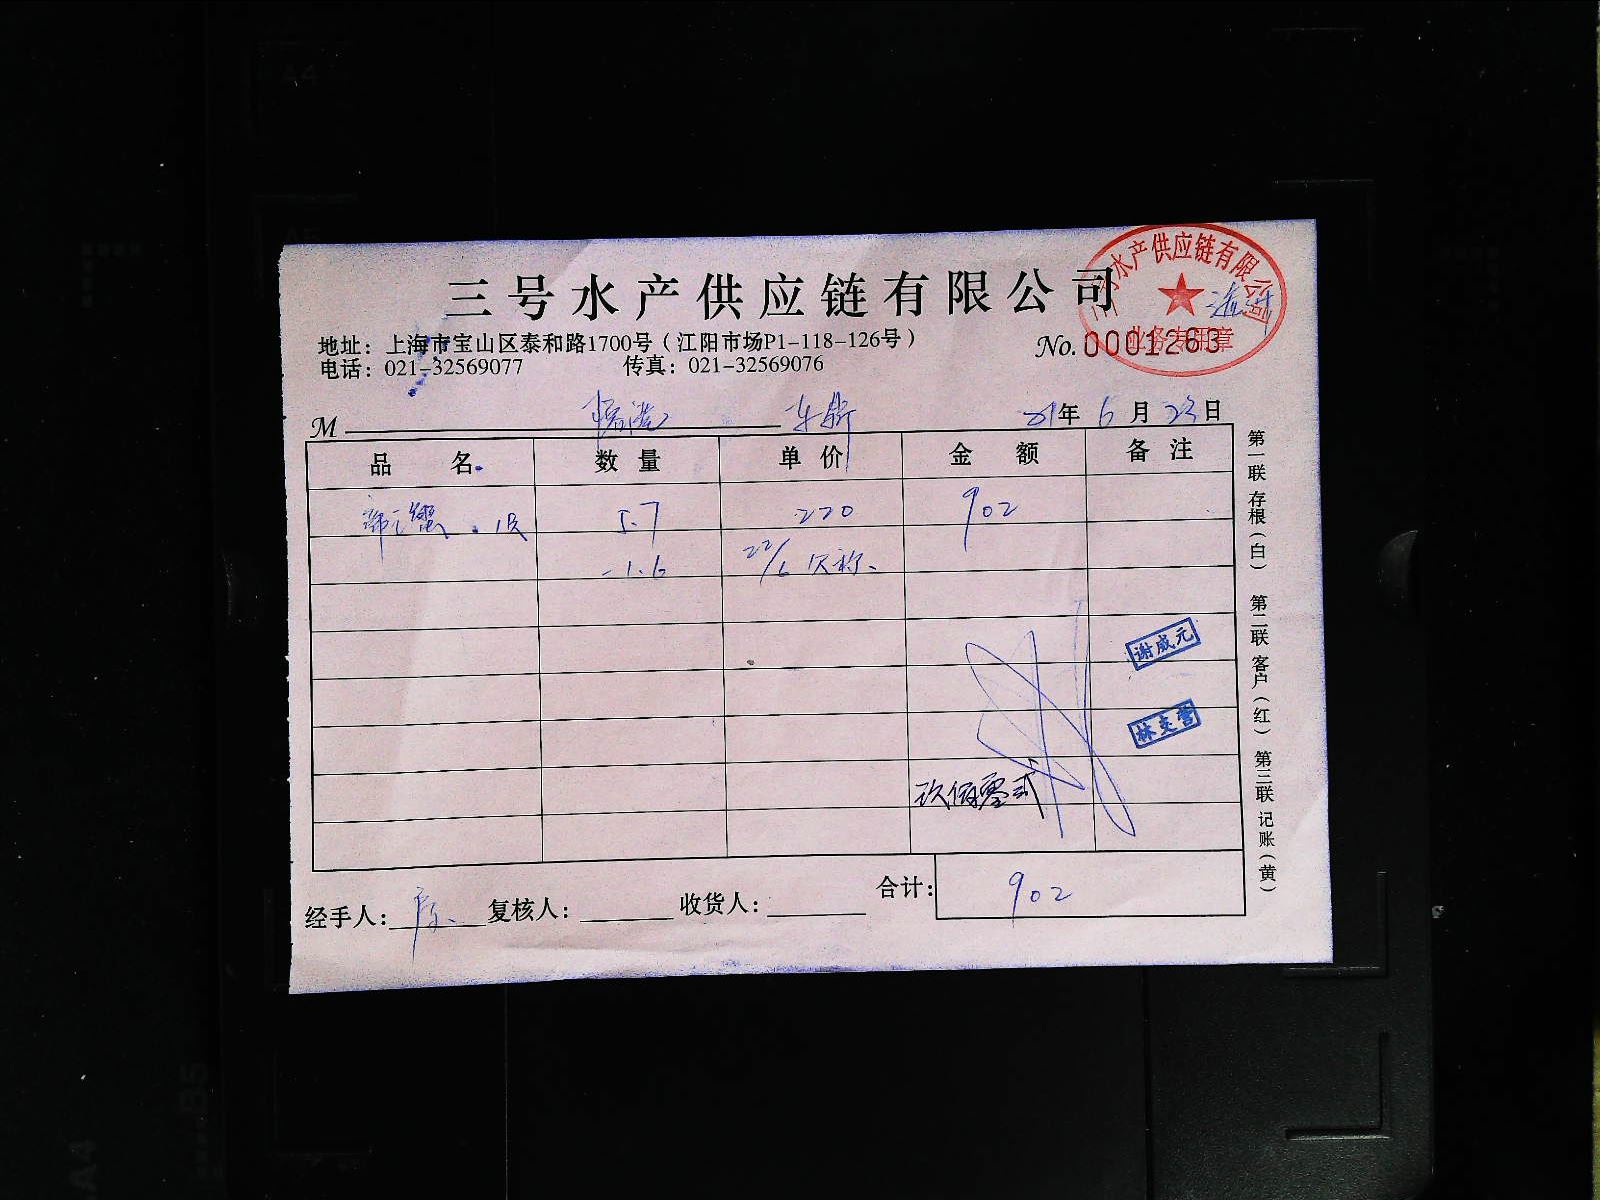 三号水产供应链有限公司
三号水产供应链有限公司
业务专用章
地址：上海市宝山区泰和路1700号（江阳市场P1-118-126号）
No. 0001263
电话：021-32569077 传真：021-32569076
M 21年 6月 23日
品名 数量 单价 金额 备注
5.7 220 902
-1.6 22/6 欠称、
谢威元
林支营
玖佰零贰
合计： 902
经手人： 复核人： 收货人：
第一联 存根（白） 第二联 客户（红） 第三联 记账（黄）
A4
A5
B5
A4